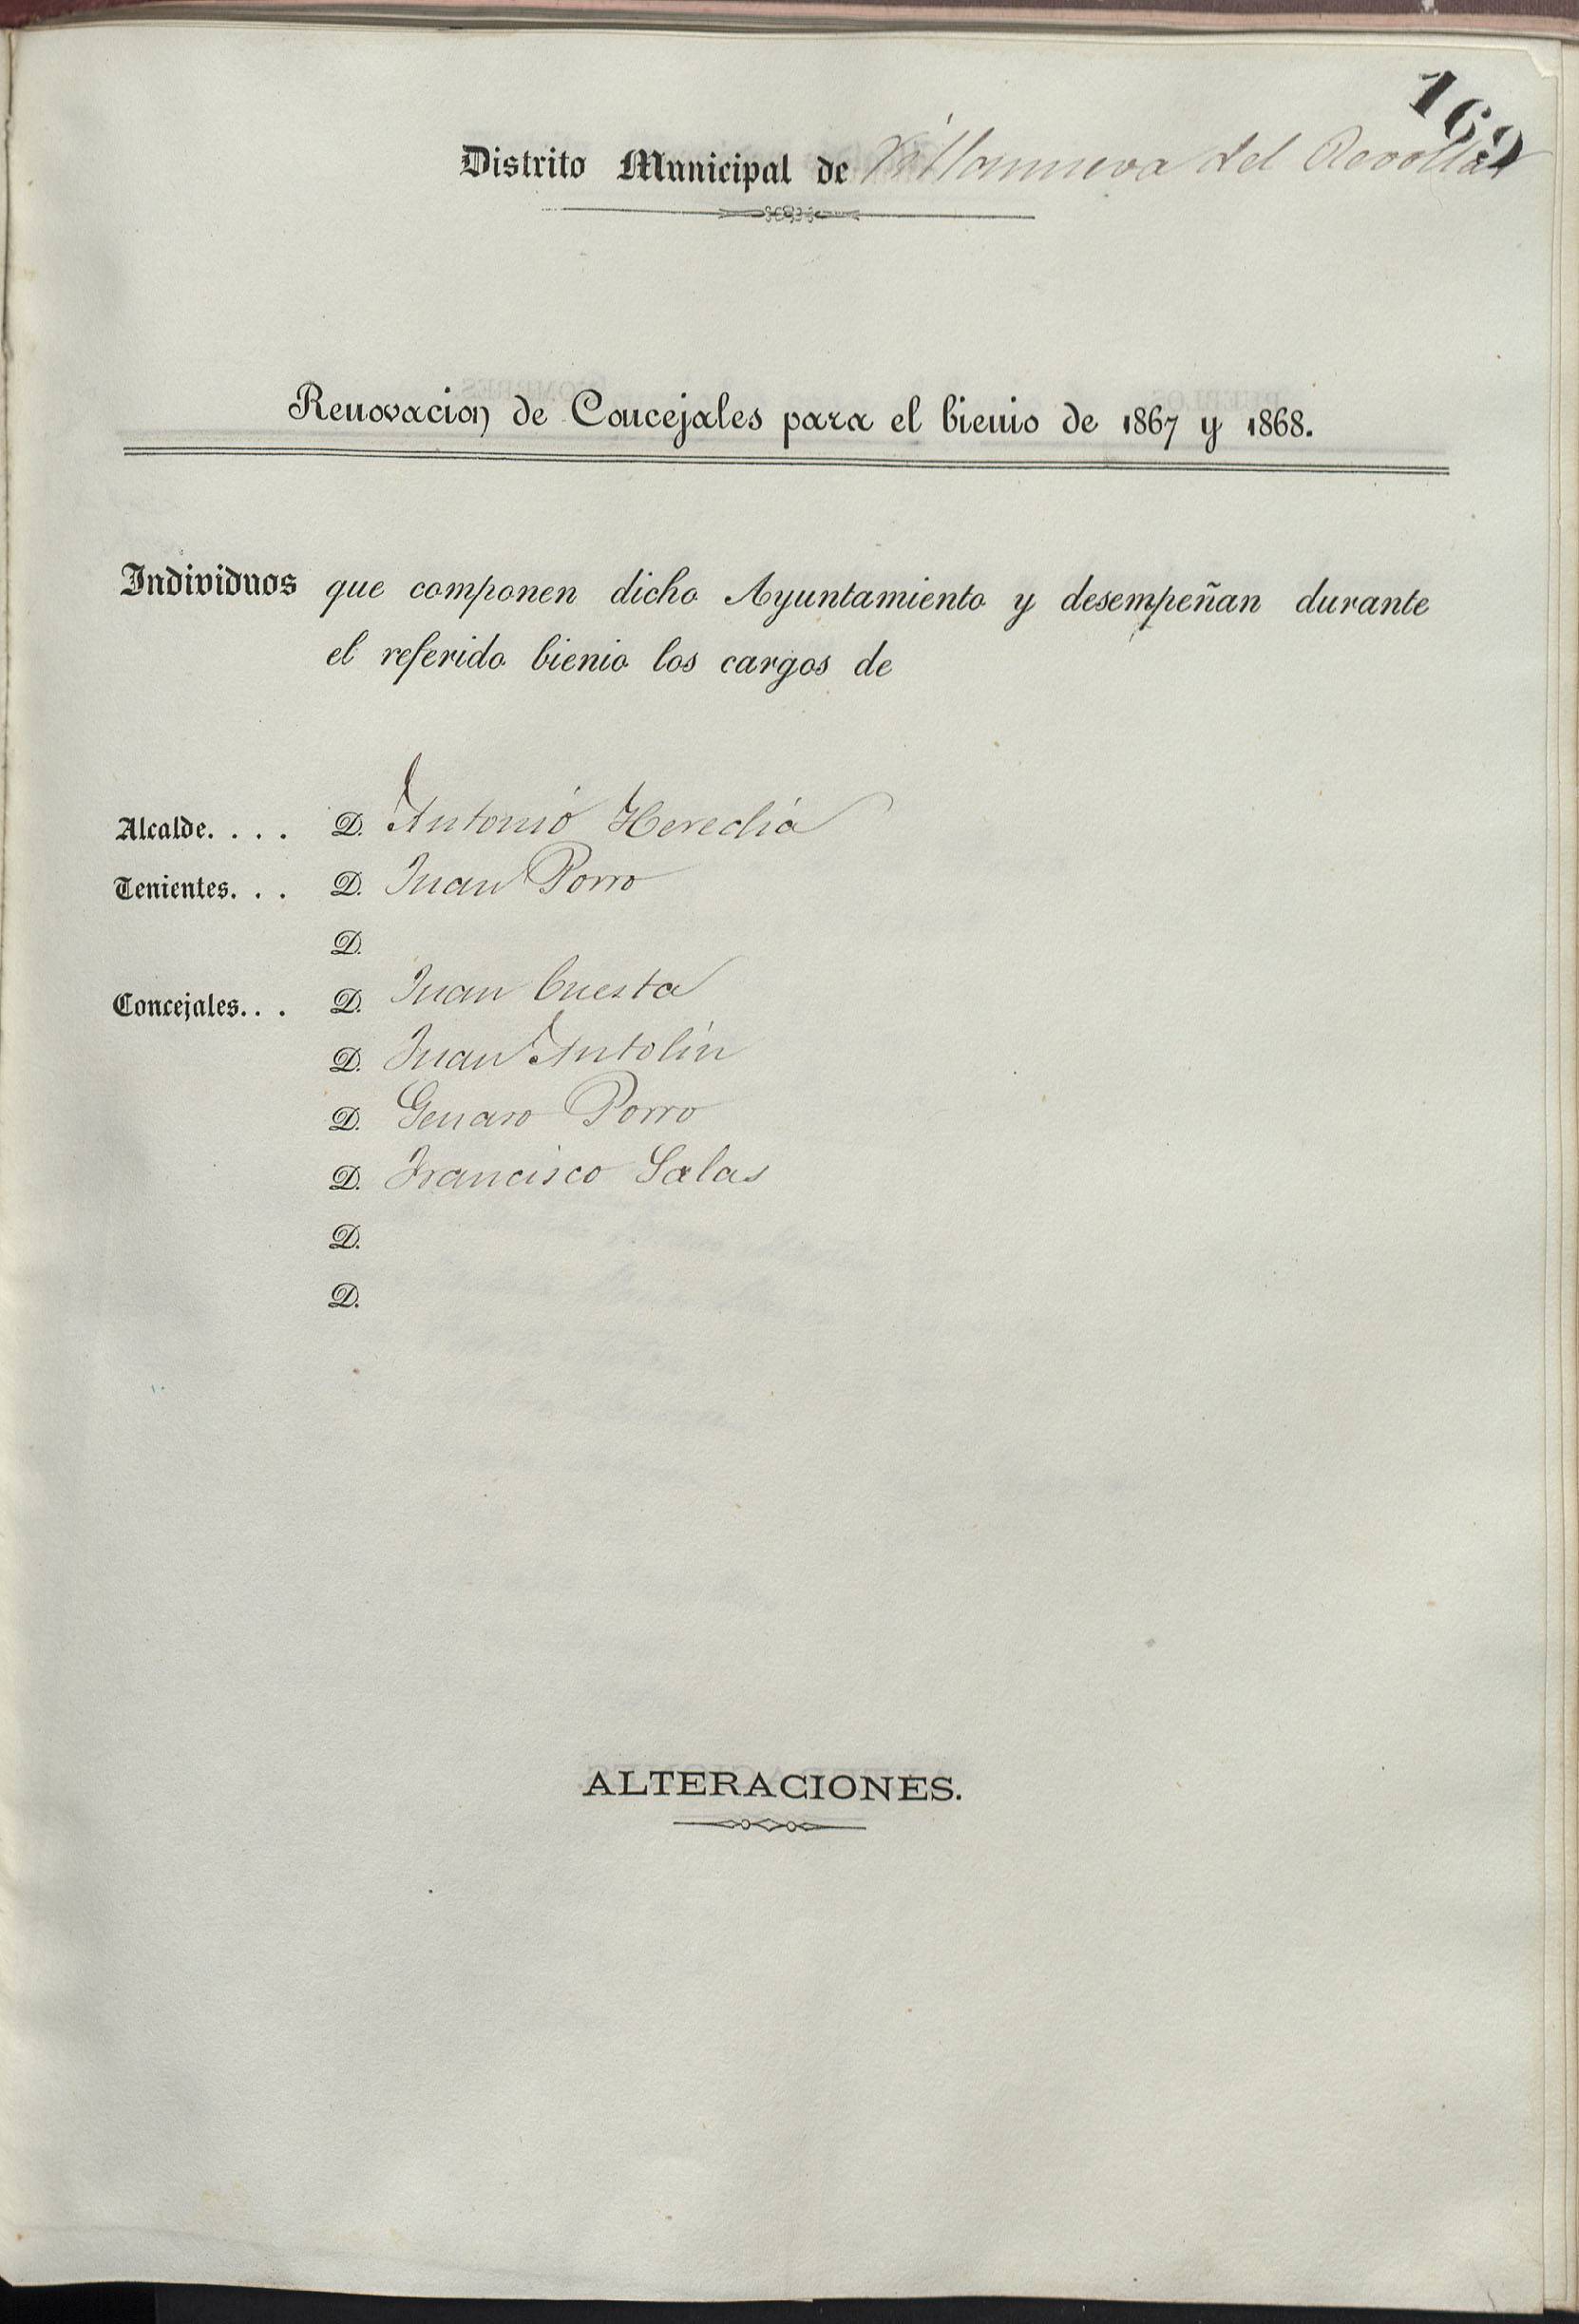 169
Distrito Municipal de Villanueva del Revollar
Renovacion de Concejales para el bienio de 1867 y 1868.
Individuos que componen dicho Ayuntamiento y desempeñan durante
el referido bienio los cargos de
Alcalde. . . . D. Antonio Heredia
Tenientes. . . D. Juan Porro
D.
Concejales. . . D. Juan Cuesta
D. Juan Antolin
D. Genaro Porro
D. Francisco Salas
D.
D.
ALTERACIONES.